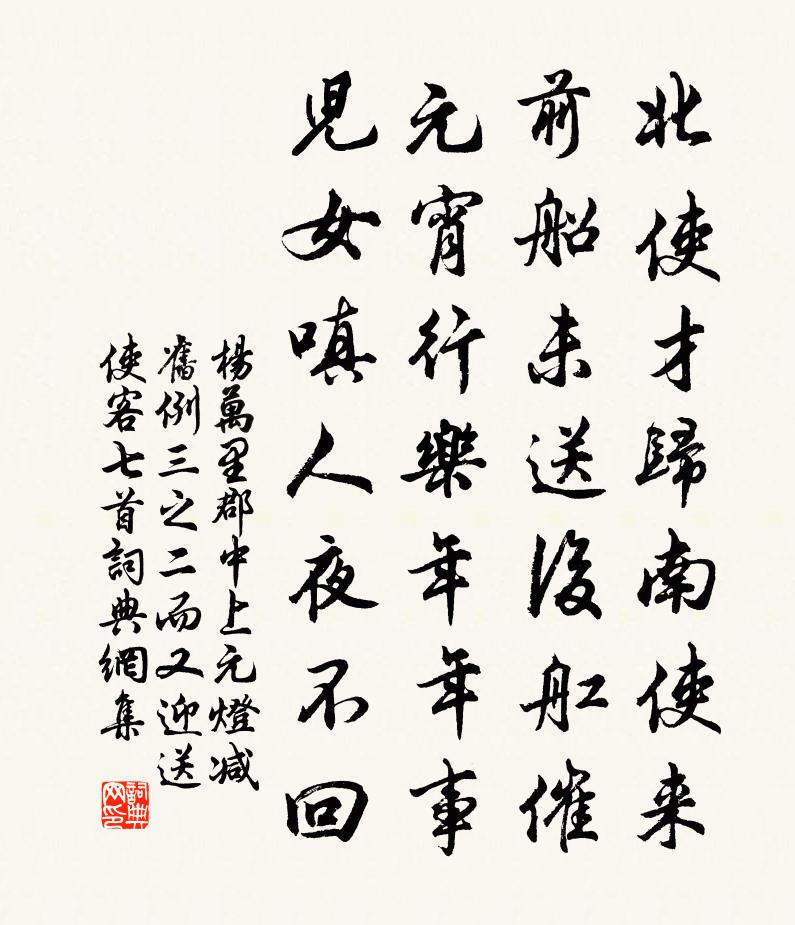 北使才歸南使来
前船未送後舡催
元宵行樂年年事
児女嗔人夜不回
楊萬里郡中上元燈减
舊例三之二而又迎送
使客七首詞典網集
詞典网印